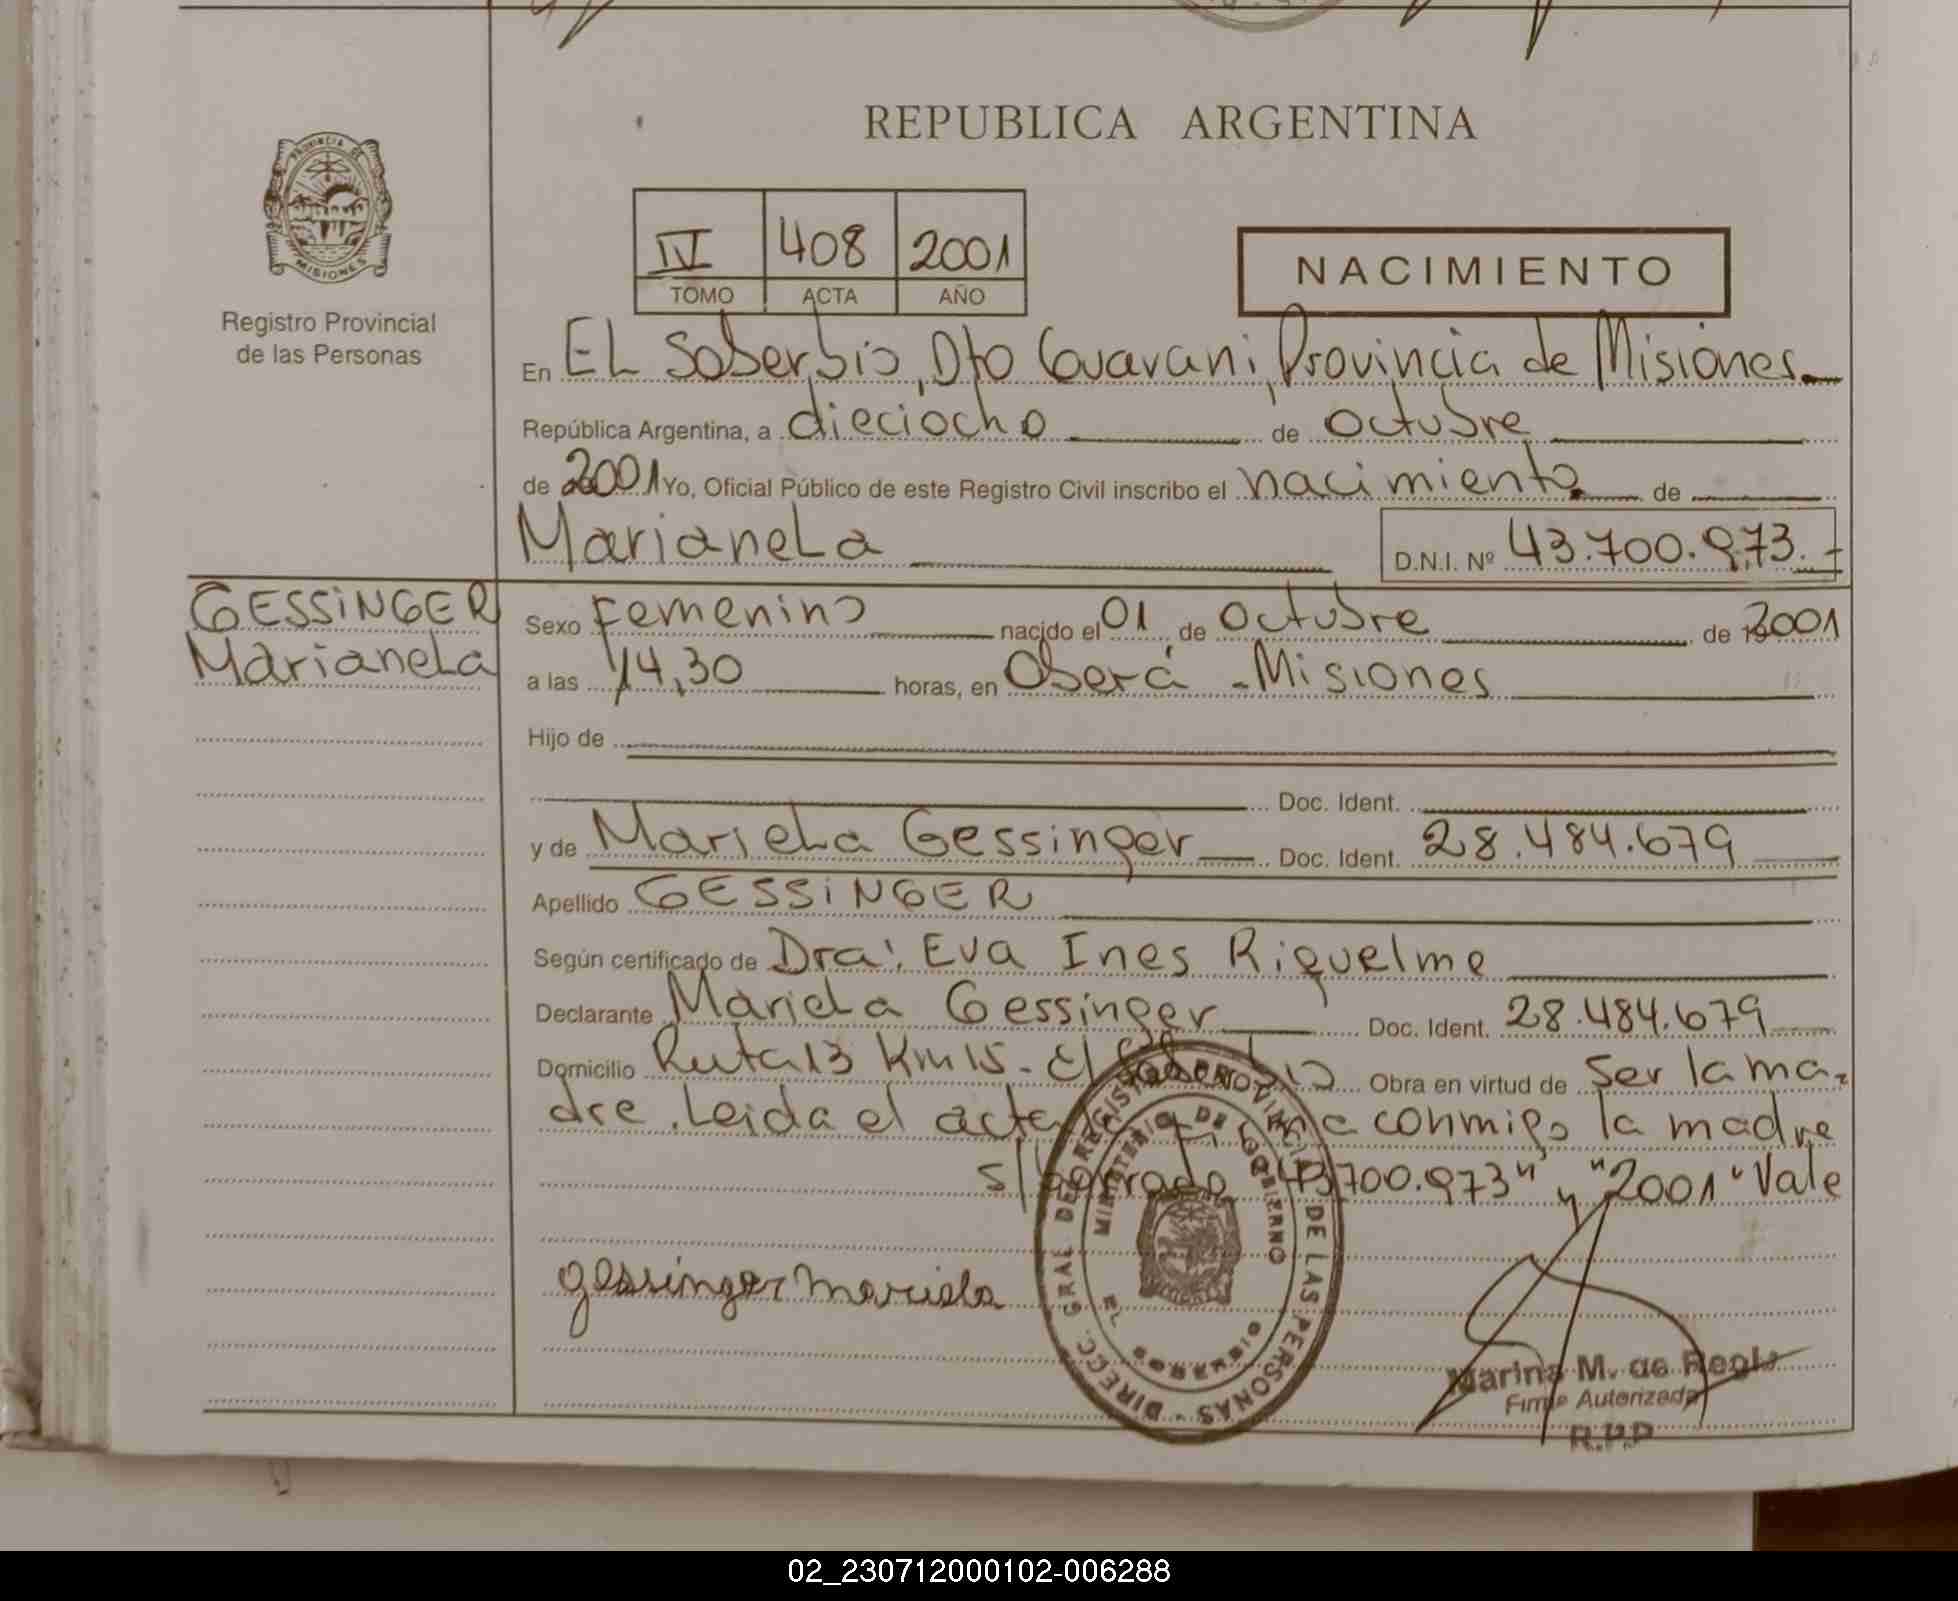 REPUBLICA ARGENTINA
PROVINCIA DE MISIONES
Registro Provincial
de las Personas
IV 408 2001
TOMO ACTA AÑO
NACIMIENTO
En EL Soberbio, Dto Guarani, Provincia de Misiones.
República Argentina, a dieciocho de octubre
de 2001 Yo, Oficial Público de este Registro Civil inscribo el nacimiento de
Marianela D.N.I. Nº 43.700.973.
GESSiNGER
Marianela
Sexo Femenino nacido el 01 de Octubre de 2001
a las 14,30 horas, en Oberá - Misiones
Hijo de
Doc. Ident.
y de Mariela Gessinger Doc. Ident. 28.484.679
Apellido GESSiNGER
Según certificado de Dra: Eva Ines Riquelme
Declarante Mariela Gessinger Doc. Ident. 28.484.679
Domicilio Ruta 13 Km 15 - El Soberbio Obra en virtud de ser la ma-
dre. Leida el acta firma conmigo la madre
s/borrado "43.700.973" y "2001" Vale
gessinger mariela
DIRECC. GRAL DE REGISTRO PROVINCIAL DE LAS PERSONAS -
MINISTERIO DE GOBIERNO
EL SOBERBIO
Marina M. de Regis
Firma Autorizada
R.P.P
02_230712000102-006288